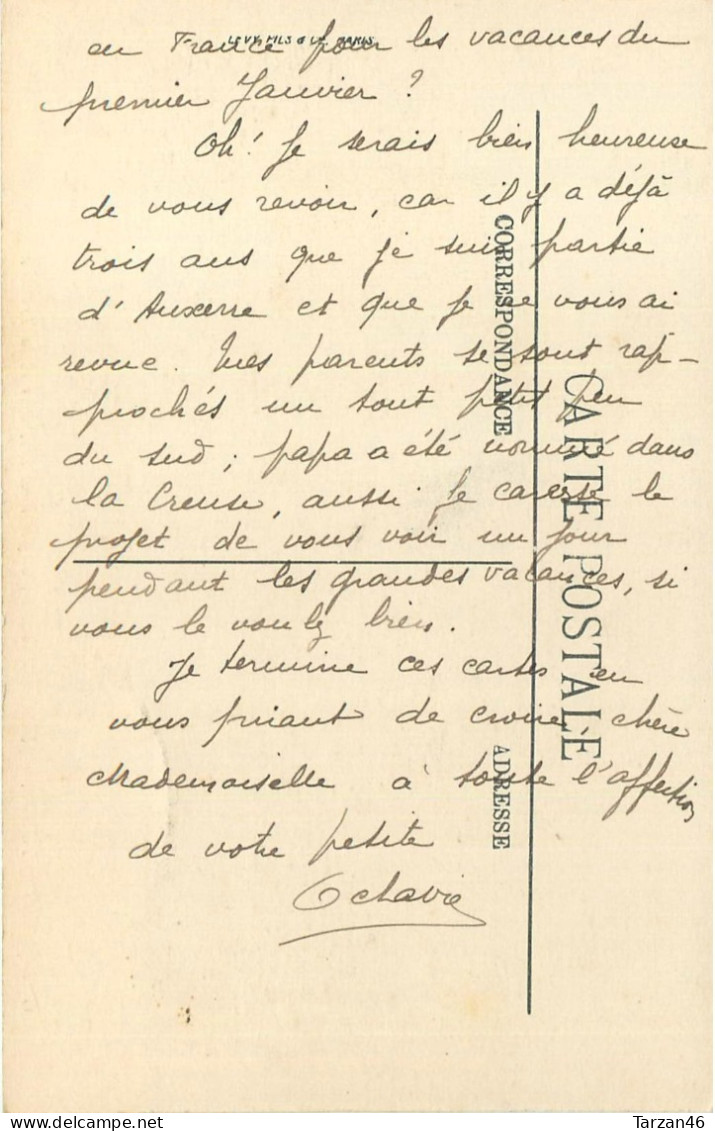 LEVY FILS & Cie PARIS
en France pour les vacances du
premier Janvier ?
Oh! Je serais bien heureuse
de vous revoir, car il y a déjà
trois ans que je suis partie
d'Auxerre et que je ne vous ai
revue. Mes parents se sont rap-
prochés un tout petit peu
du sud ; papa a été nommé dans
la Creuse, aussi je caresse le
projet de vous voir un jour
pendant les grandes vacances, si
vous le voulez bien.
Je termine ces cartes en
vous priant de croire, chère
Mademoiselle à toute l'affection
de votre petite
Octavie
CARTE POSTALE
CORRESPONDANCE
ADRESSE
Tarzan46